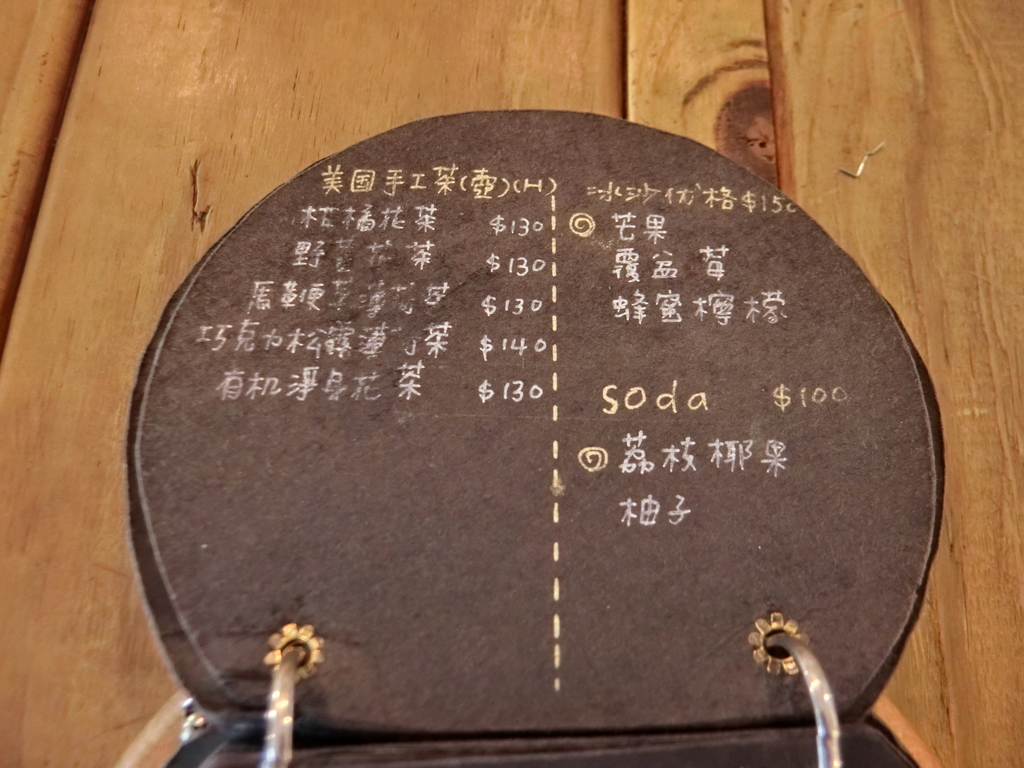 美国手工茶(壺)(H)
柑橘花茶 $130
野 花茶 $130
馬鞭草薄荷茶 $130
巧克力松露薄 茶 $140
有机淨身花茶 $130
冰沙优格$150
芒果
覆盆莓
蜂蜜檸檬
soda $100
荔枝椰果
柚子